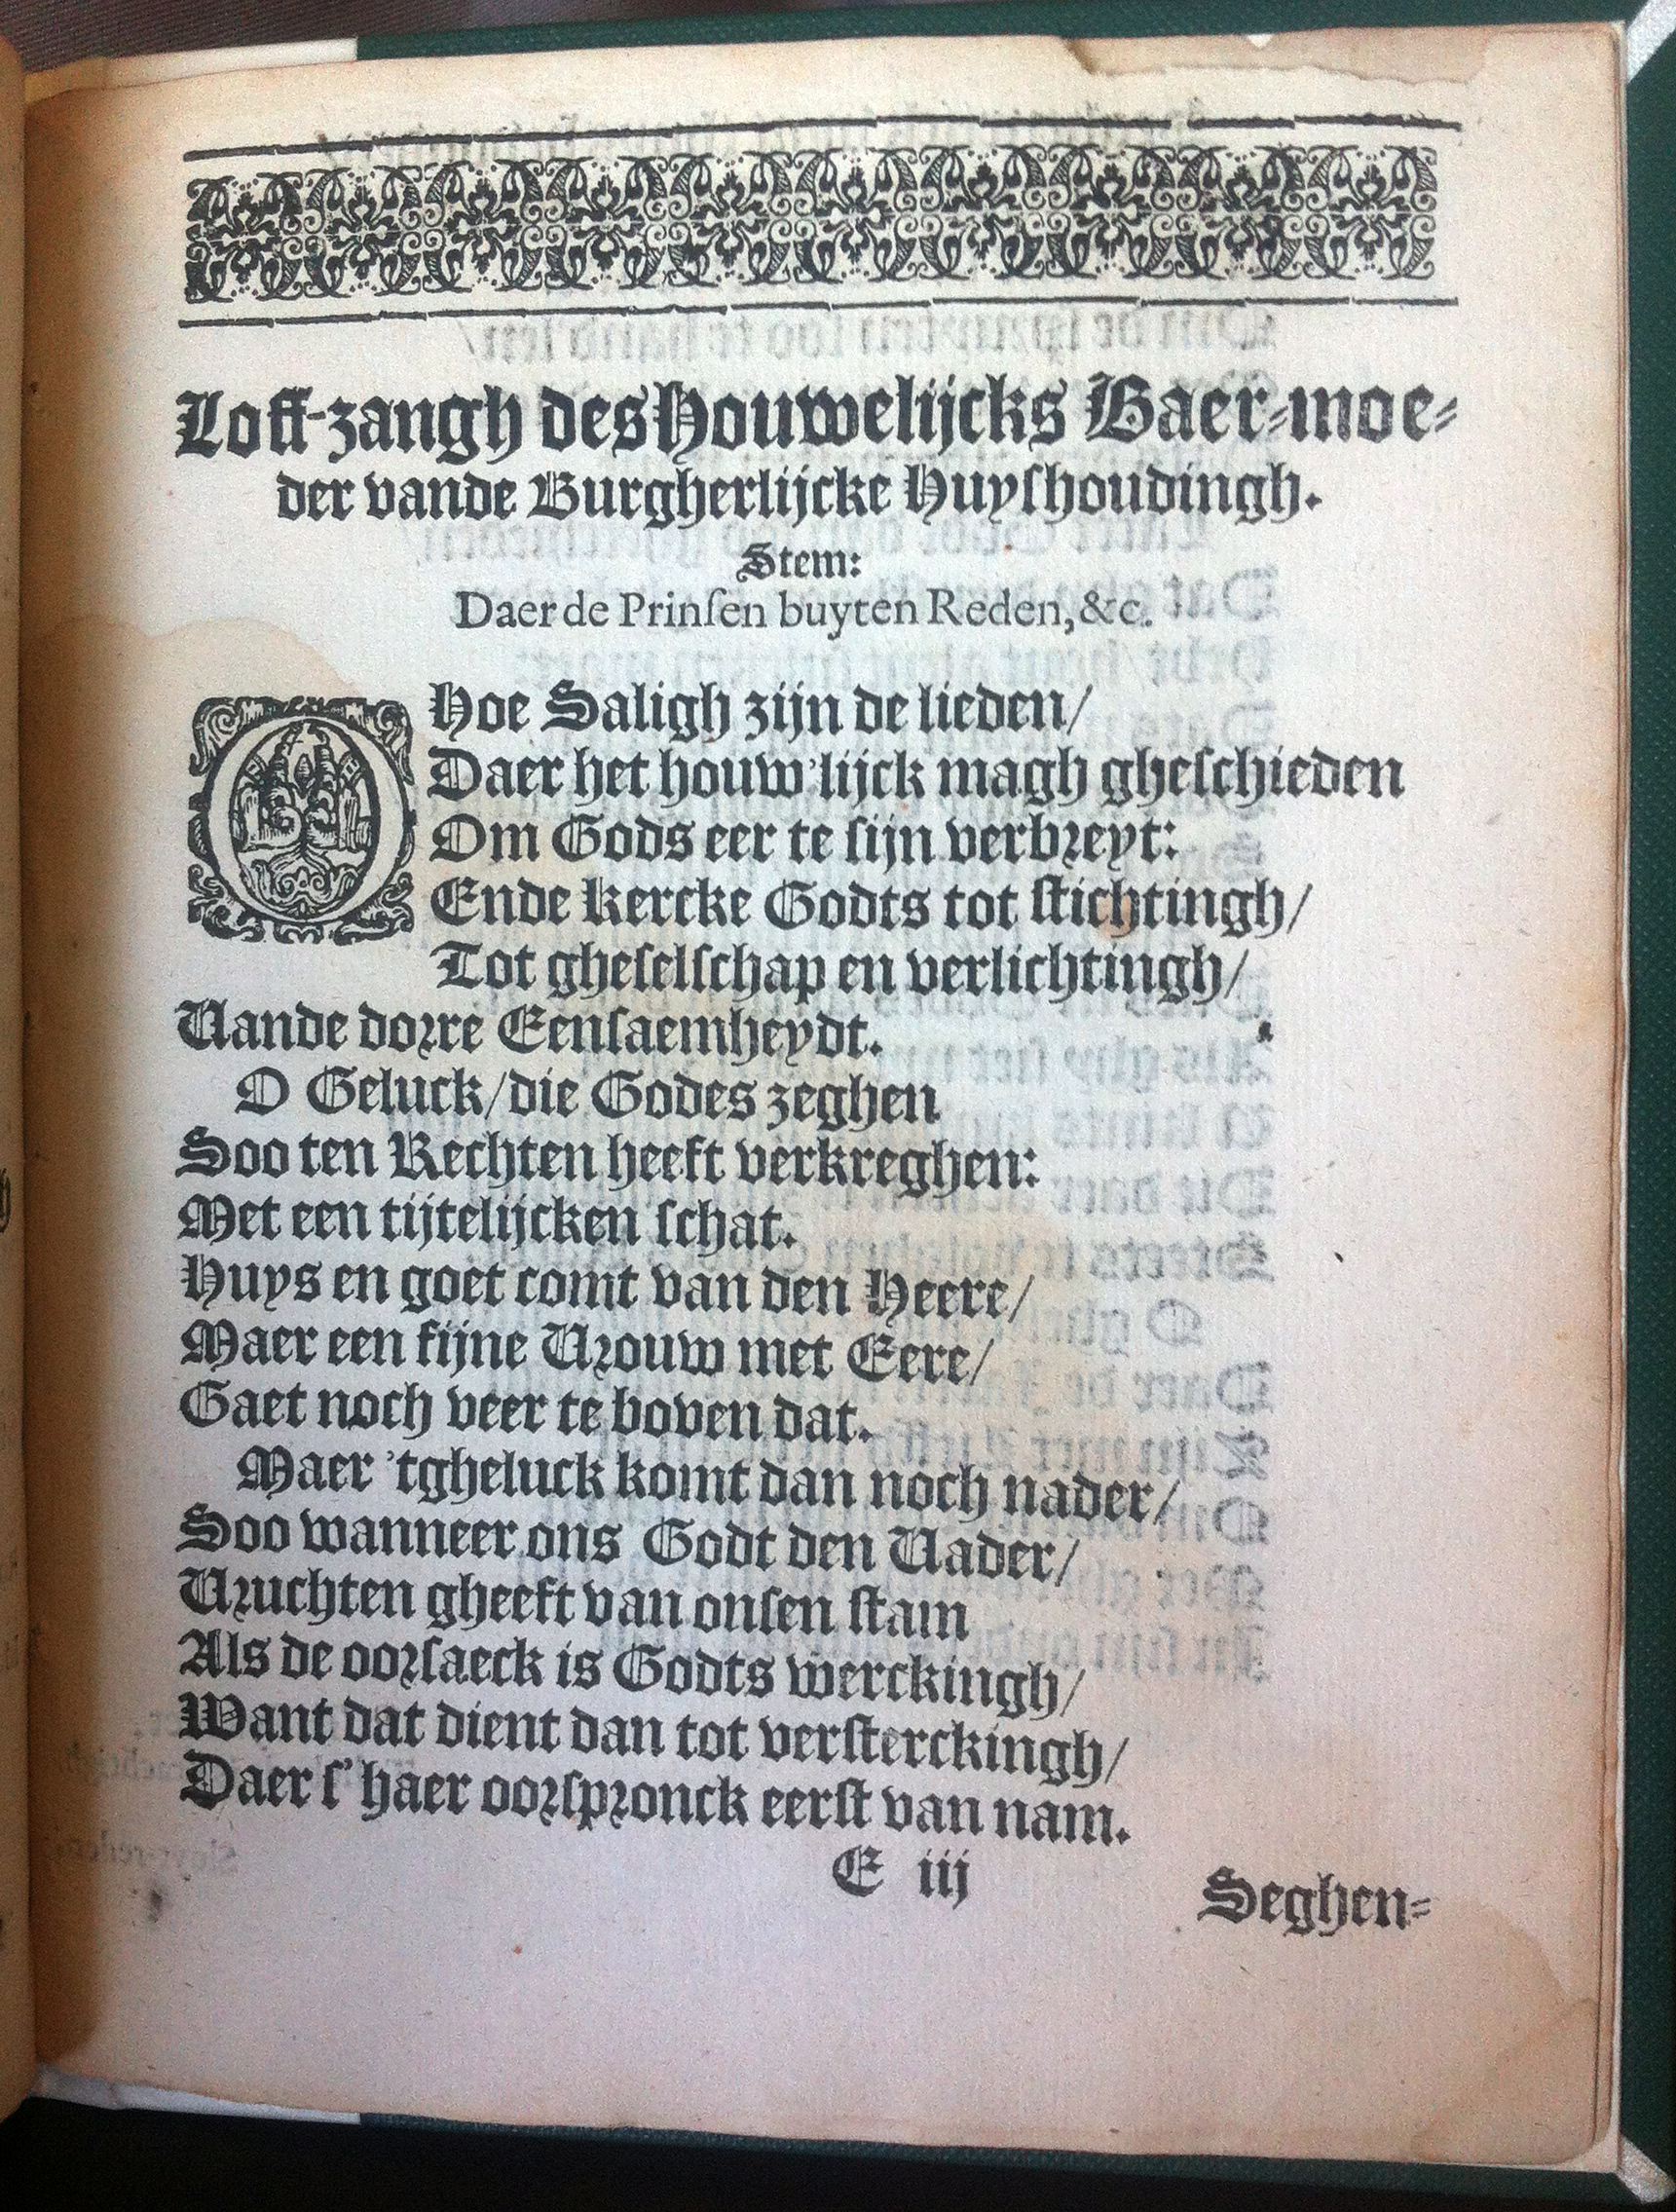 Loff-zangh des Houwelijcks Baer-moe-
der vande Burgherlijcke Huyſhoudingh.
Stem:
Daer de Prinſen buyten Reden, &c.
O Hoe Saligh zijn de lieden/
Daer het houw'lijck magh gheſchieden
Om Gods eer te ſijn verbreyt:
Ende Kercke Godts tot ſtichtingh/
Tot gheſelſchap en verlichtingh/
Vande dorre Eenſaemheydt.
O Geluck/die Godes zeghen
Soo ten Rechten heeft verkreghen:
Met een tijtelijcken ſchat.
Huys en goet comt van den Heere/
Maer een fijne Vrouw met Eere/
Gaet noch veer te boven dat.
Maer 'tgheluck komt dan noch nader/
Soo wanneer ons Godt den Vader/
Vruchten gheeft van onſen ſtam
Als de oorſaeck is Godts werckingh/
Want dat dient dan tot verſterckingh/
Daer ſ' haer oorſpronck eerſt van nam.
E iij
Seghen-